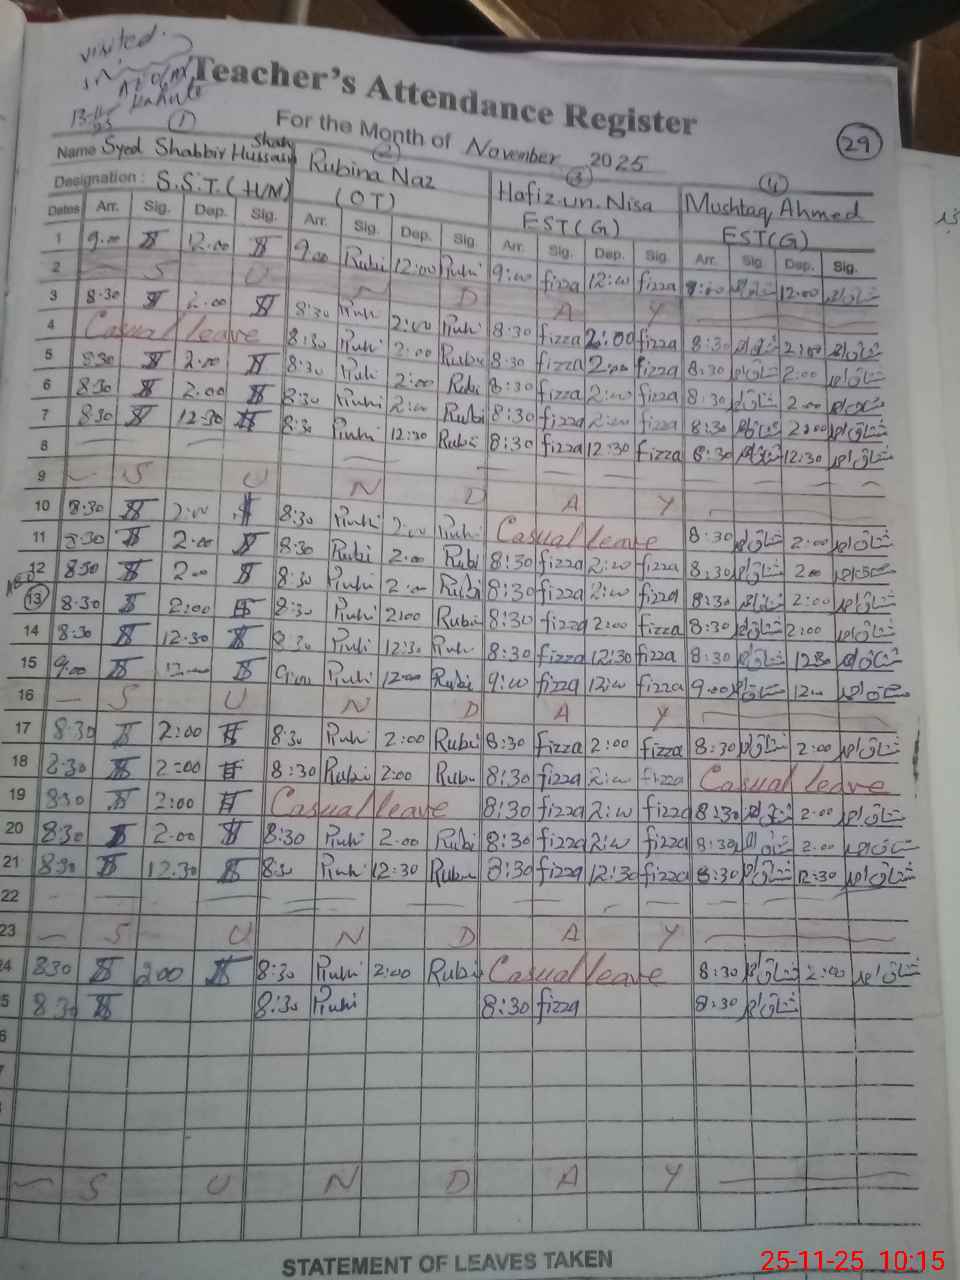 visited
13-11-25
Teacher's Attendance Register
For the Month of November 2025
29
1 2 3 4
Name Syed Shabbir Hussain Shah Rubina Naz Hafiz.un.Nisa Mushtaq Ahmed
Designation : S.S.T(H/M) (OT) EST(G) EST(G)
Dates Arr. Sig. Dep. Sig. Arr. Sig. Dep. Sig. Arr. Sig. Dep. Sig. Arr. Sig. Dep. Sig.
1 9.00 12.00 9.00 Rubi 12:00 Rubi 9:00 fizza 12:00 fizza 9:00 مشتاق احمد 12.00 مشتاق احمد
2 S U N D A Y
3 8.30 2.00 8:30 Rubi 2:00 Rubi 8:30 fizza 2:00 fizza 8:30 مشتاق احمد 2:00 مشتاق احمد
4 Casual leave 8:30 Rubi 2:00 Rubi 8:30 fizza 2:00 fizza 8:30 مشتاق احمد 2:00 مشتاق احمد
5 8:30 2.00 8:30 Rubi 2:00 Rubi 8:30 fizza 2:00 fizza 8:30 مشتاق احمد 2.00 مشتاق احمد
6 8:30 2.00 8:30 Rubi 2:00 Rubi 8:30 fizza 2:00 fizza 8:30 مشتاق احمد 2:00 مشتاق احمد
7 8:30 12.30 8:30 Rubi 12:30 Rubi 8:30 fizza 12:30 fizza 8:30 مشتاق احمد 12:30 مشتاق احمد
8
9 S U N D A Y
10 8.30 2:00 8:30 Rubi 2:00 Rubi Casual leave 8:30 مشتاق احمد 2:00 مشتاق احمد
11 8.30 2.00 8:30 Rubi 2:00 Rubi 8:30 fizza 2:00 fizza 8:30 مشتاق احمد 2:00 مشتاق احمد
12 8:30 2:00 8:30 Rubi 2:00 Rubi 8:30 fizza 2:00 fizza 8:30 مشتاق احمد 2:00 مشتاق احمد
13 8.30 2:00 8:30 Rubi 2:00 Rubi 8:30 fizza 2:00 fizza 8:30 مشتاق احمد 2:00 مشتاق احمد
14 8:30 12.30 8:30 Rubi 12:30 Rubi 8:30 fizza 12:30 fizza 8:30 مشتاق احمد 12:30 مشتاق احمد
15 9:00 12:00 9:00 Rubi 12:00 Rubi 9:00 fizza 12:00 fizza 9:00 مشتاق احمد 12:00 مشتاق احمد
16 S U N D A Y
17 8:30 2:00 8:30 Rubi 2:00 Rubi 8:30 fizza 2:00 fizza 8:30 مشتاق احمد 2:00 مشتاق احمد
18 8:30 2:00 8:30 Rubi 2:00 Rubi 8:30 fizza 2:00 fizza Casual leave
19 8:30 2:00 Casual leave 8:30 fizza 2:00 fizza 8:30 مشتاق احمد 2.00 مشتاق احمد
20 8:30 2.00 8:30 Rubi 2:00 Rubi 8:30 fizza 2:00 fizza 8:30 مشتاق احمد 2.00 مشتاق احمد
21 8:30 12.30 8:30 Rubi 12:30 Rubi 8:30 fizza 12:30 fizza 8:30 مشتاق احمد 12:30 مشتاق احمد
22
23 S U N D A Y
24 8.30 2.00 8:30 Rubi 2:00 Rubi Casual leave 8:30 مشتاق احمد 2:00 مشتاق احمد
5 8.30 8:30 Rubi 8:30 fizza 8:30 مشتاق احمد
6
7
S U N D A Y
STATEMENT OF LEAVES TAKEN
25-11-25 10:15